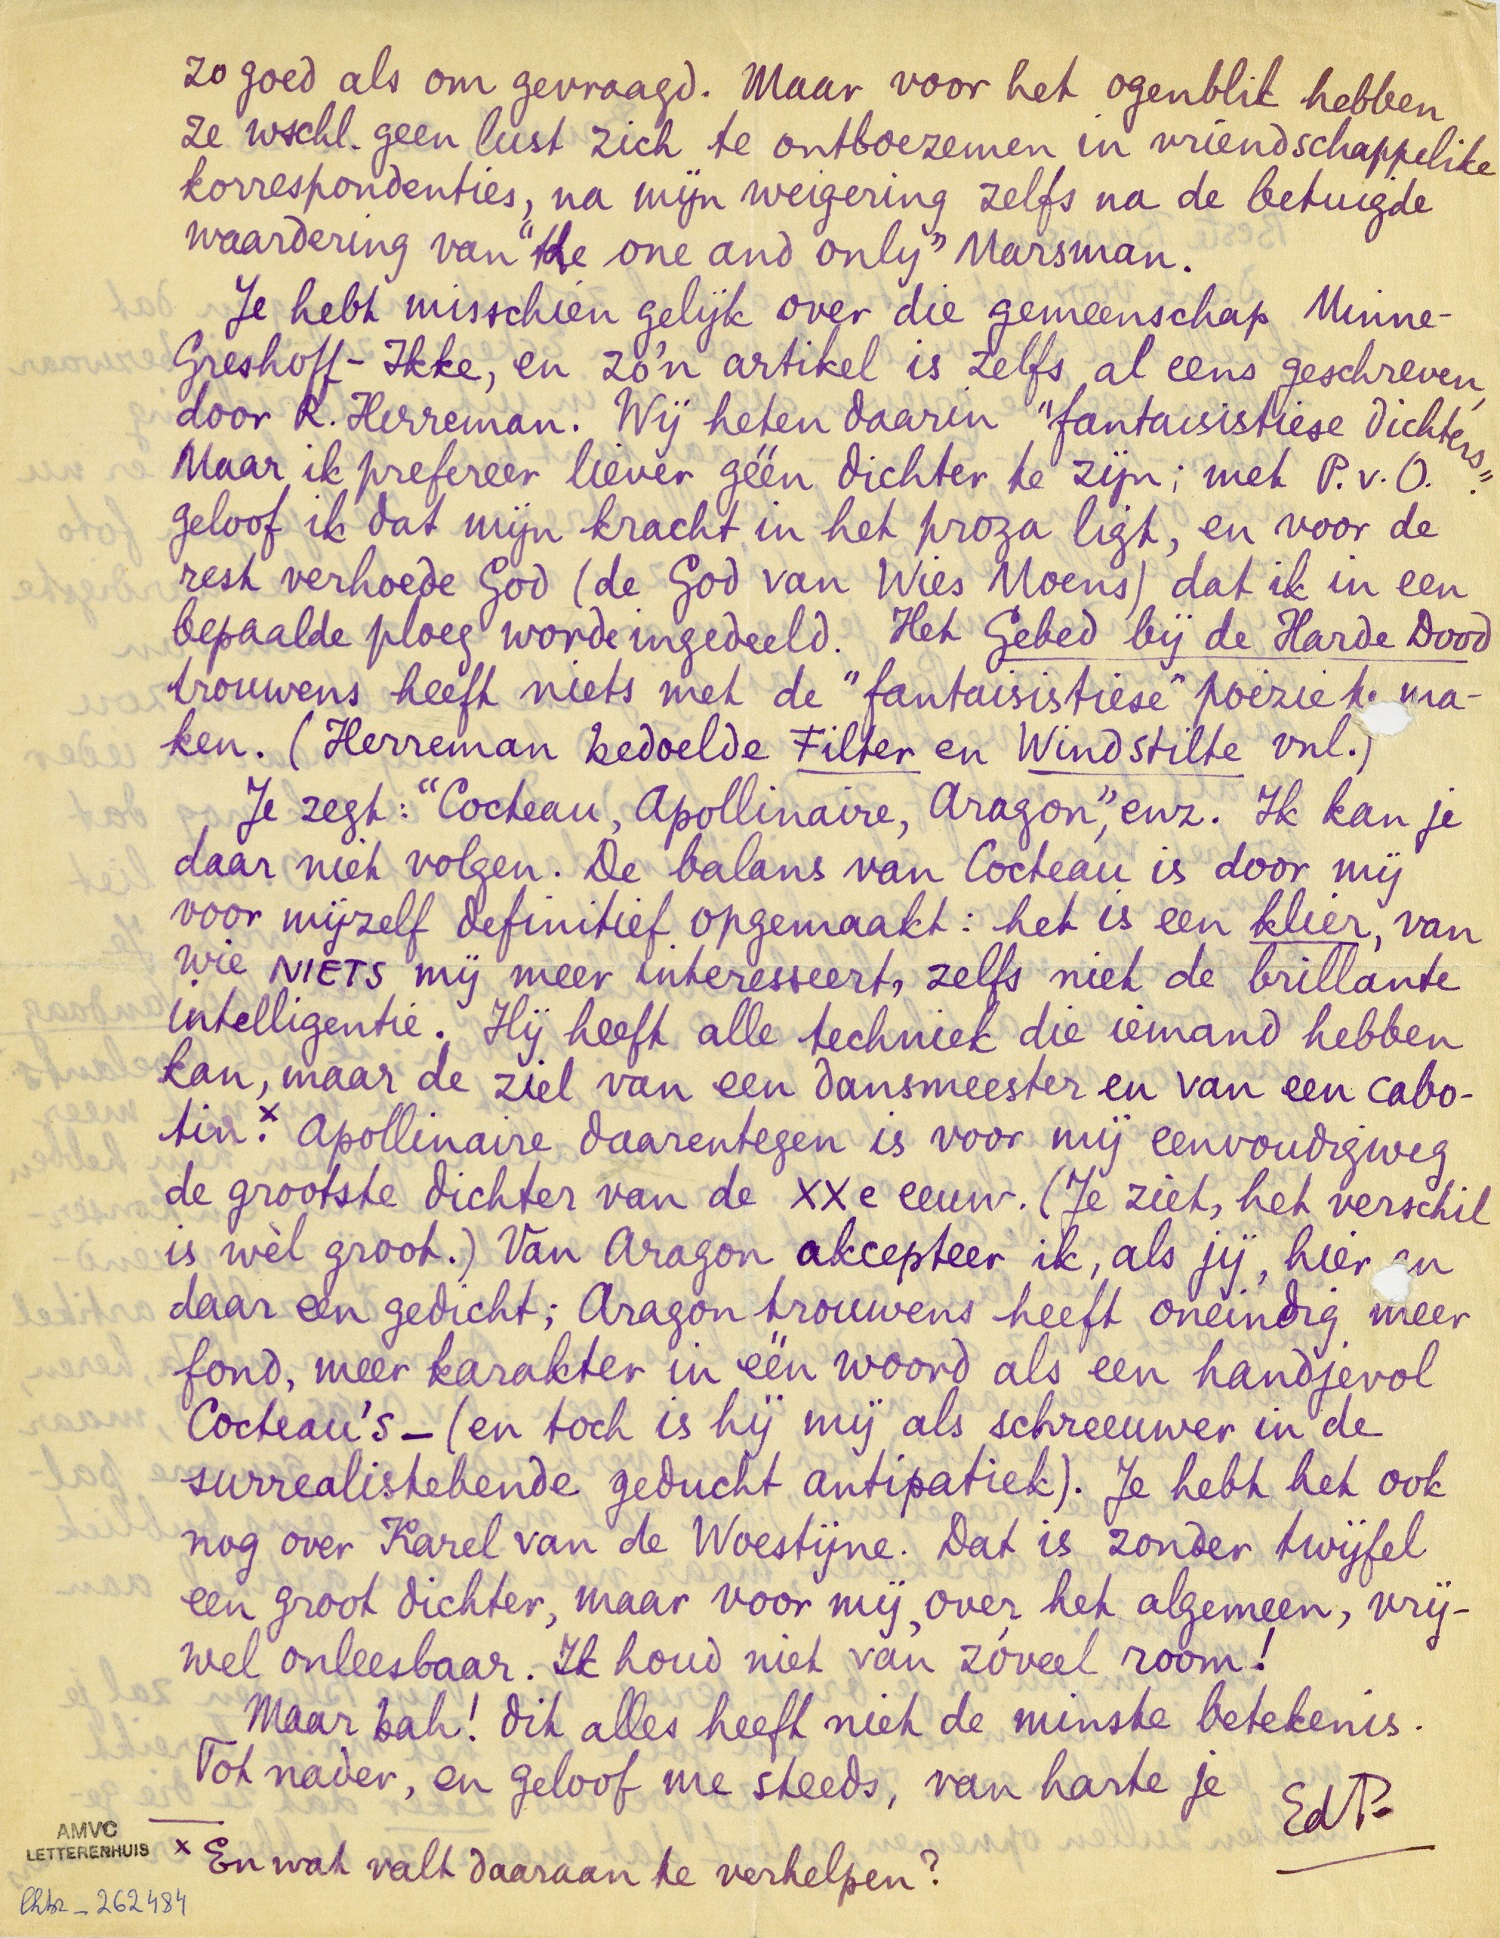 zo goed als om gevraagd. Maar voor het ogenblik hebben
ze wschl. geen lust zich te ontboezemen in vriendschappelike
korrespondenties, na mijn weigering zelfs na de betuigde
waardering van "the one and only" Marsman.
Je hebt misschien gelijk over die gemeenschap Minne-
Greshoff-Ikke, en zo'n artikel is zelfs al eens geschreven,
door R. Herreman. Wij heten daarin "fantaisistiese dichters".
Maar ik prefereer liever géén dichter te zijn; met P.v.O.
geloof ik dat mijn kracht in het proza ligt, en voor de
rest verhoede God (de God van Wies Moens) dat ik in een
bepaalde ploeg worde ingedeeld. Het Gebed bij de Harde Dood
trouwens heeft niets met de "fantaisistiese" poëzie te ma-
ken. (Herreman bedoelde Filter en Windstilte vnl.)
Je zegt: "Cocteau, Apollinaire, Aragon", enz. Ik kan je
daar niet volgen. De balans van Cocteau is door mij
voor mijzelf definitief opgemaakt: het is een klier, van
wie NIETS mij meer interesseert, zelfs niet de brillante
intelligentie. Hij heeft alle techniek die iemand hebben
kan, maar de ziel van een dansmeester en van een cabo-
tin.x Apollinaire daarentegen is voor mij eenvoudigweg
de grootste dichter van de XXe eeuw. (Je ziet, het verschil
is wèl groot.) Van Aragon akcepteer ik, als jij, hier en
daar een gedicht; Aragon trouwens heeft oneindig meer
fond, meer karakter in één woord als een handjevol
Cocteau's – (en toch is hij mij als schreeuwer in de
surrealistebende geducht antipatiek). Je hebt het ook
nog over Karel van de Woestijne. Dat is zonder twijfel
een groot dichter, maar voor mij, over het algemeen, vrij-
wel onleesbaar. Ik houd niet van zóveel room!
Maar bah! dit alles heeft niet de minste betekenis.
Tot nader, en geloof me steeds, van harte je
EdP.
x En wat valt daaraan te verhelpen?
AMVC
LETTERENHUIS
262484